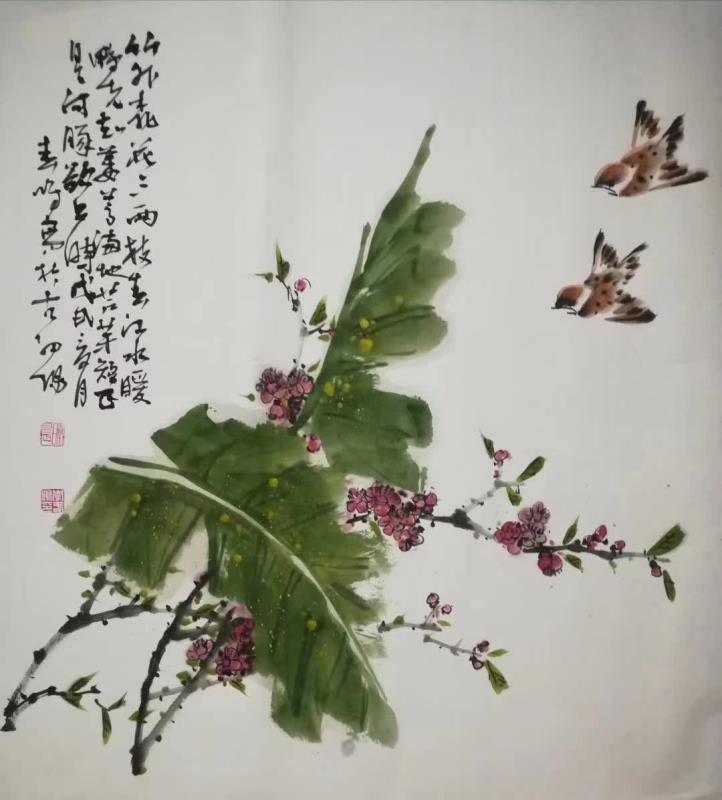 竹外桃花三两枝春江水暖
鸭先知蒌蒿满地芦芽短正
是河豚欲上时戊戌夏月
春鸣写于古